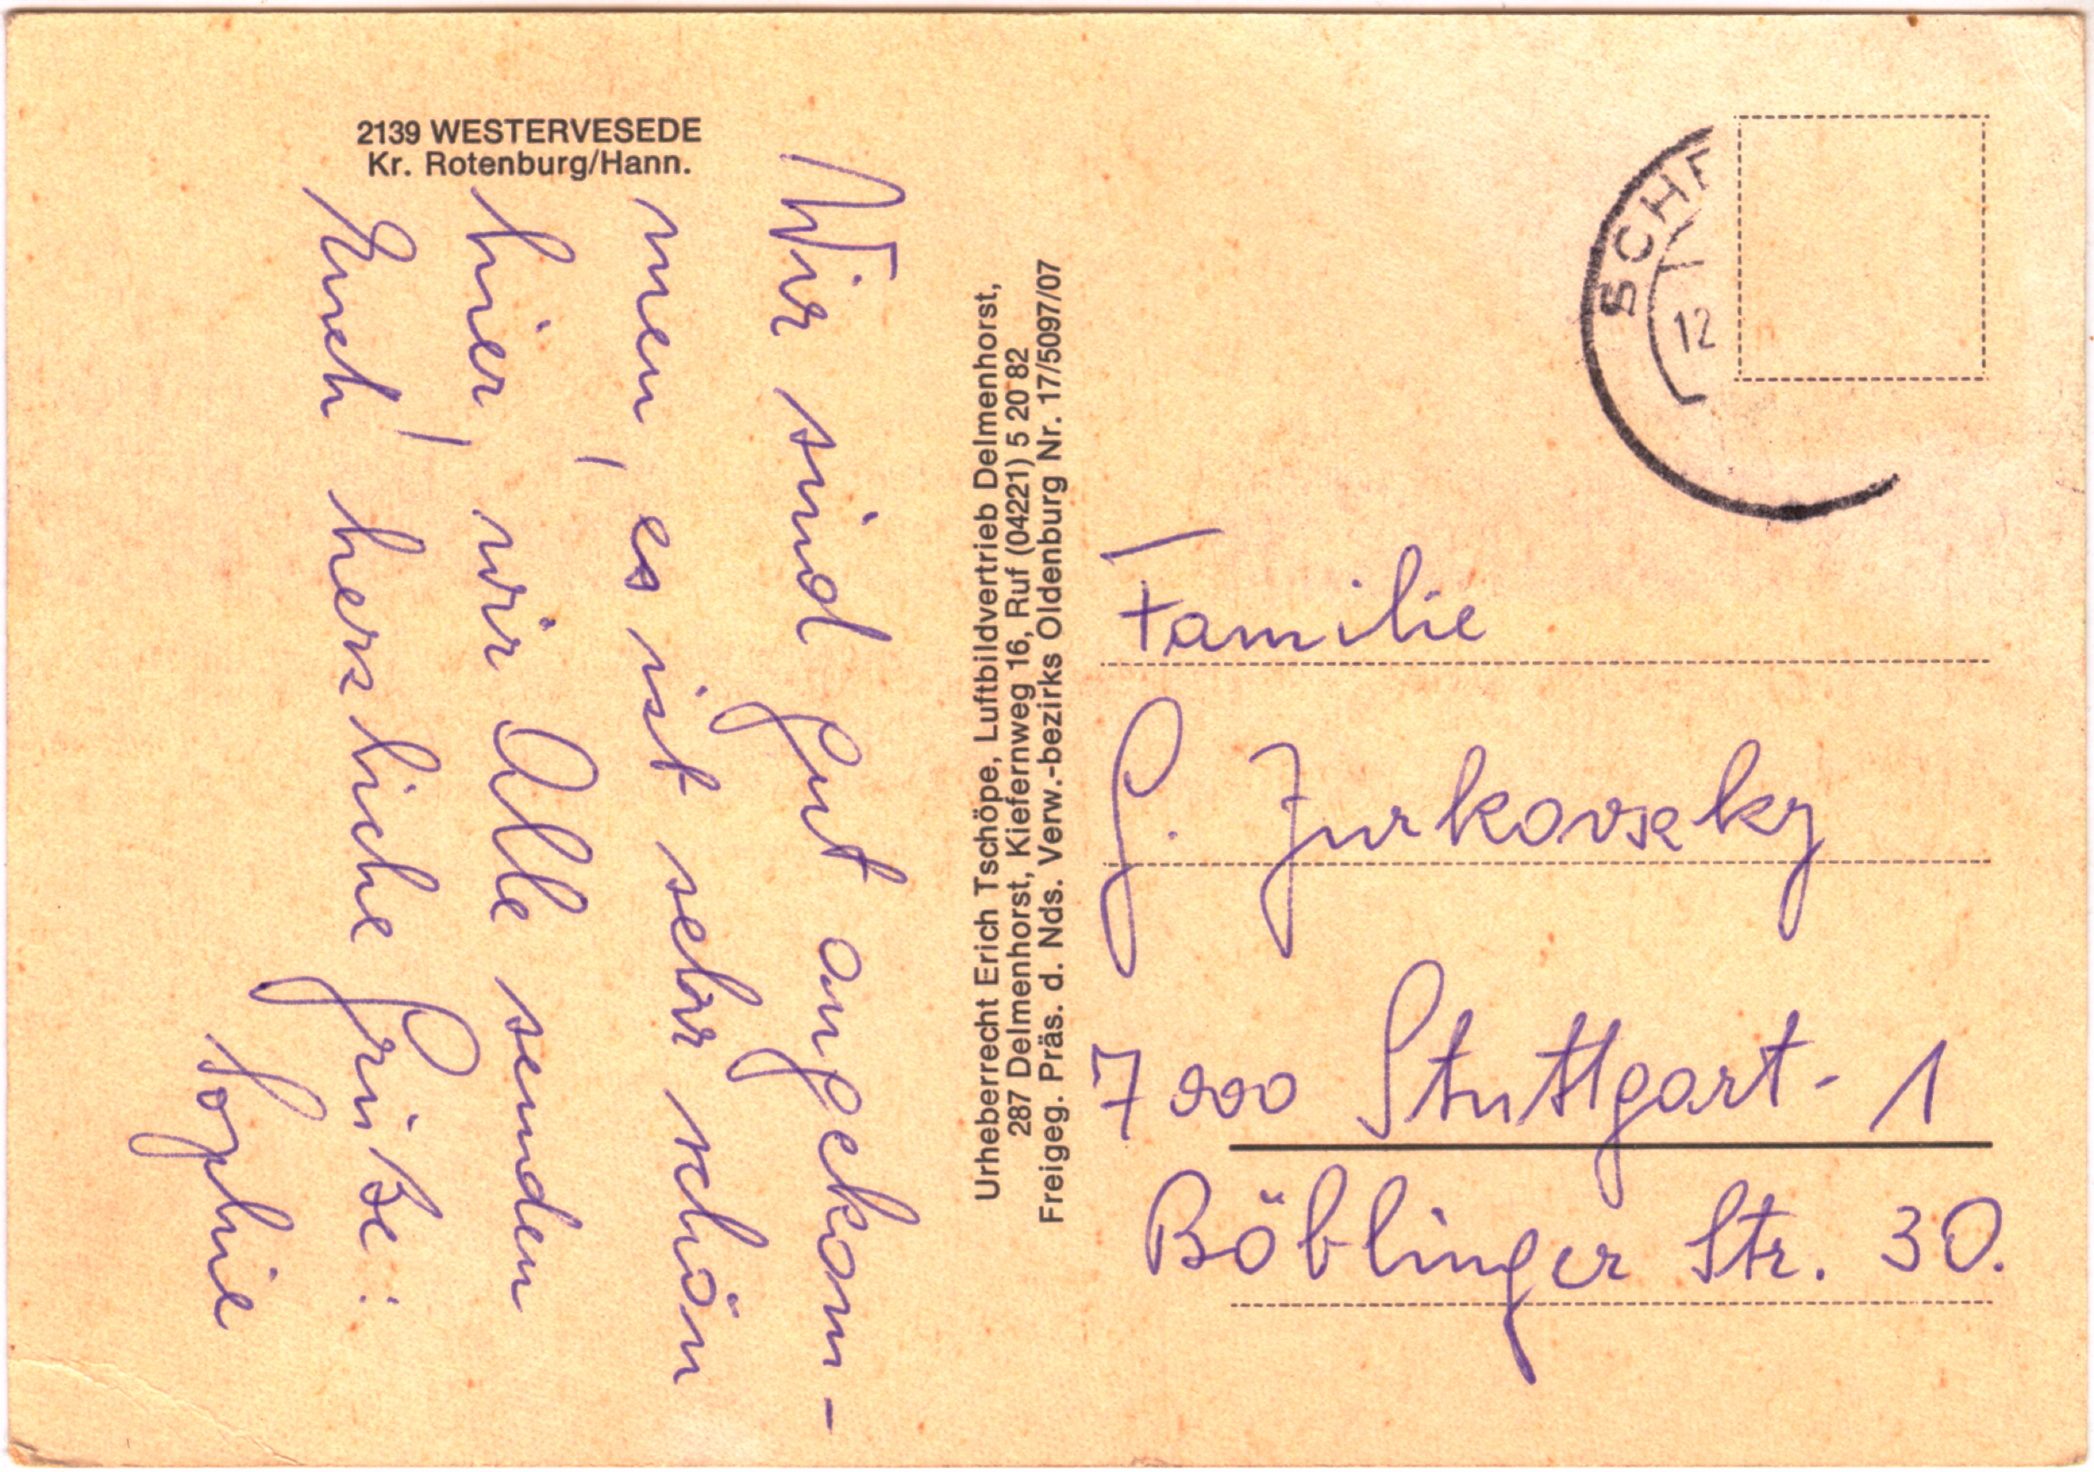 2139 WESTERVESEDE
Kr. Rotenburg/Hann.
Wir sind gut angekom-
men, es ist sehr schön
hier, wir Alle senden
Euch herzliche Grüße!
Sophie
Urheberrecht Erich Tschöpe, Luftbildvertrieb Delmenhorst,
287 Delmenhorst, Kiefernweg 16, Ruf (04221) 5 20 82
Freigeg. Präs. d. Nds. Verw.-bezirks Oldenburg Nr. 17/5097/07
SCHE
12
Familie
G. Jurkovseky
7000 Stuttgart-1
Böblinger Str. 30.